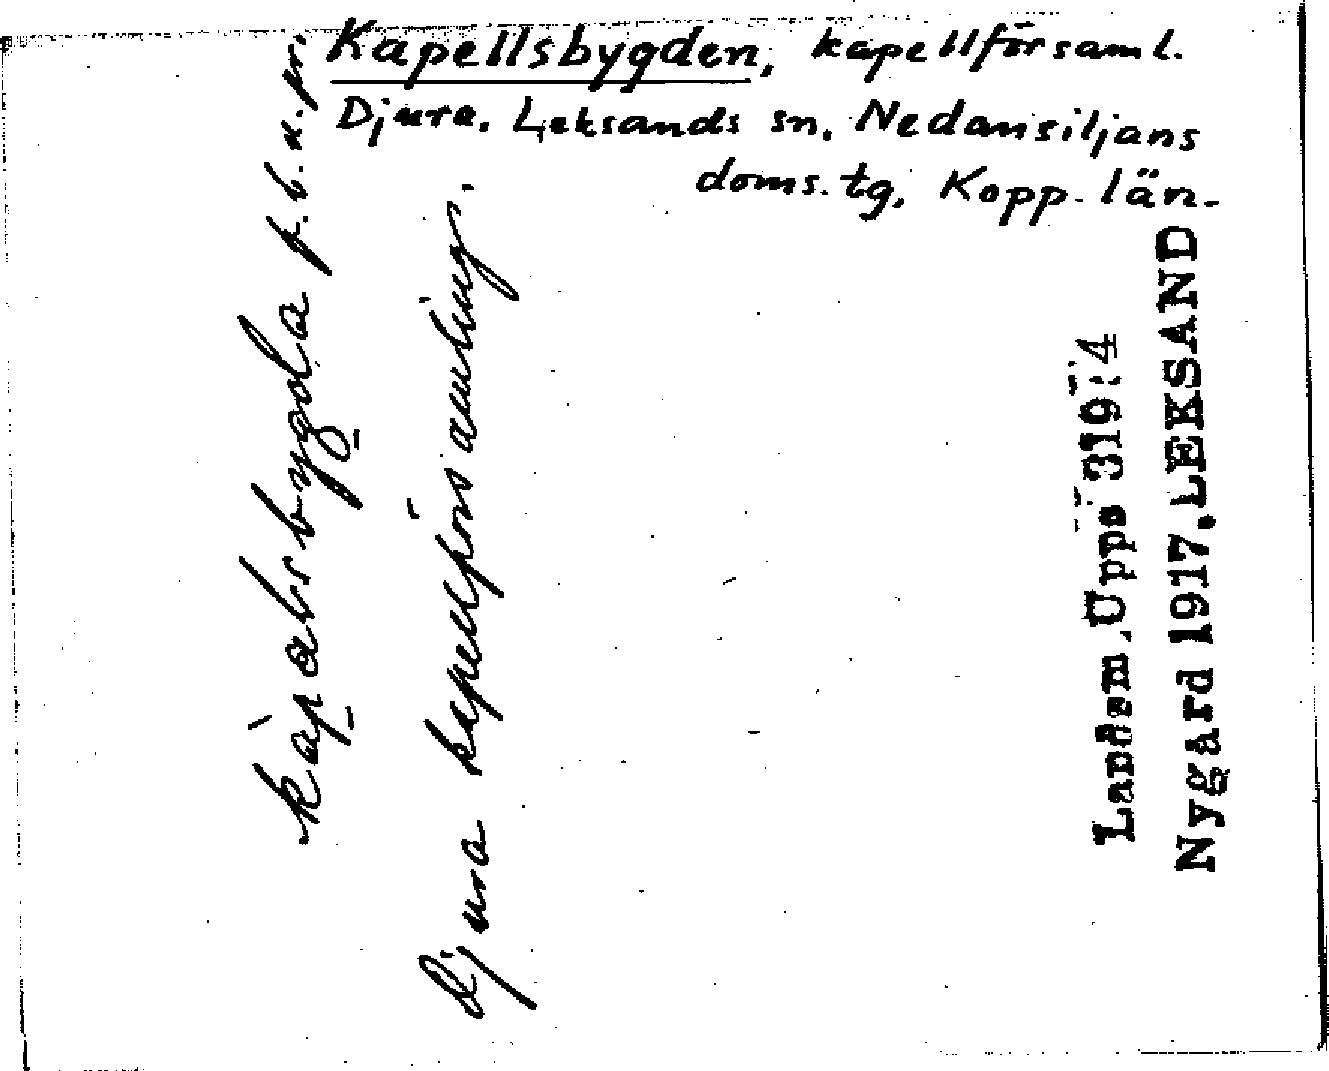 Kapellsbygden, kapellförsaml.
Djura. Leksands sn, Nedansiljans
doms. tg, Kopp. län.
f. b. u. pr.
Djura kapellförsamling.
Landsm. Upps 319:4
Nygård 1917. LEKSAND